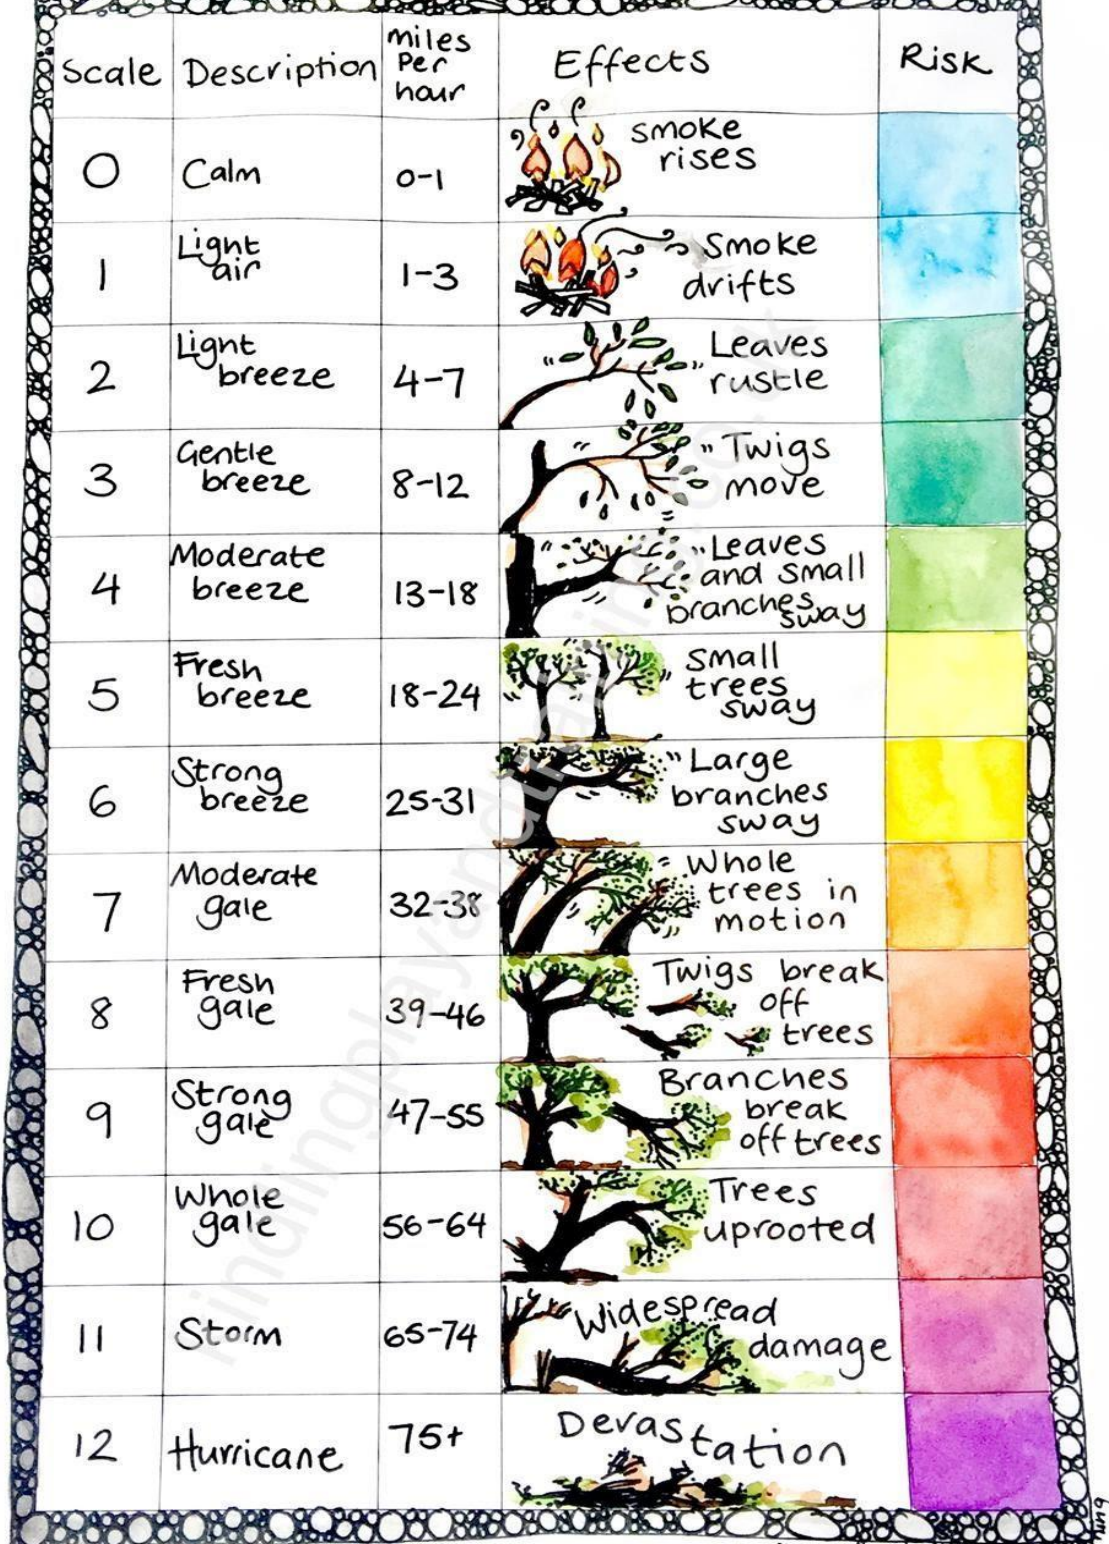 Scale Description miles Per hour Effects Risk
0 Calm 0-1 smoke rises
1 Light air 1-3 Smoke drifts
2 Light breeze 4-7 Leaves rustle
3 Gentle breeze 8-12 Twigs move
4 Moderate breeze 13-18 Leaves and small branches sway
5 Fresh breeze 18-24 Small trees sway
6 Strong breeze 25-31 Large branches sway
7 Moderate gale 32-38 Whole trees in motion
8 Fresh gale 39-46 Twigs break off trees
9 Strong gale 47-55 Branches break off trees
10 Whole gale 56-64 Trees uprooted
11 Storm 65-74 Widespread damage
12 Hurricane 75+ Devastation